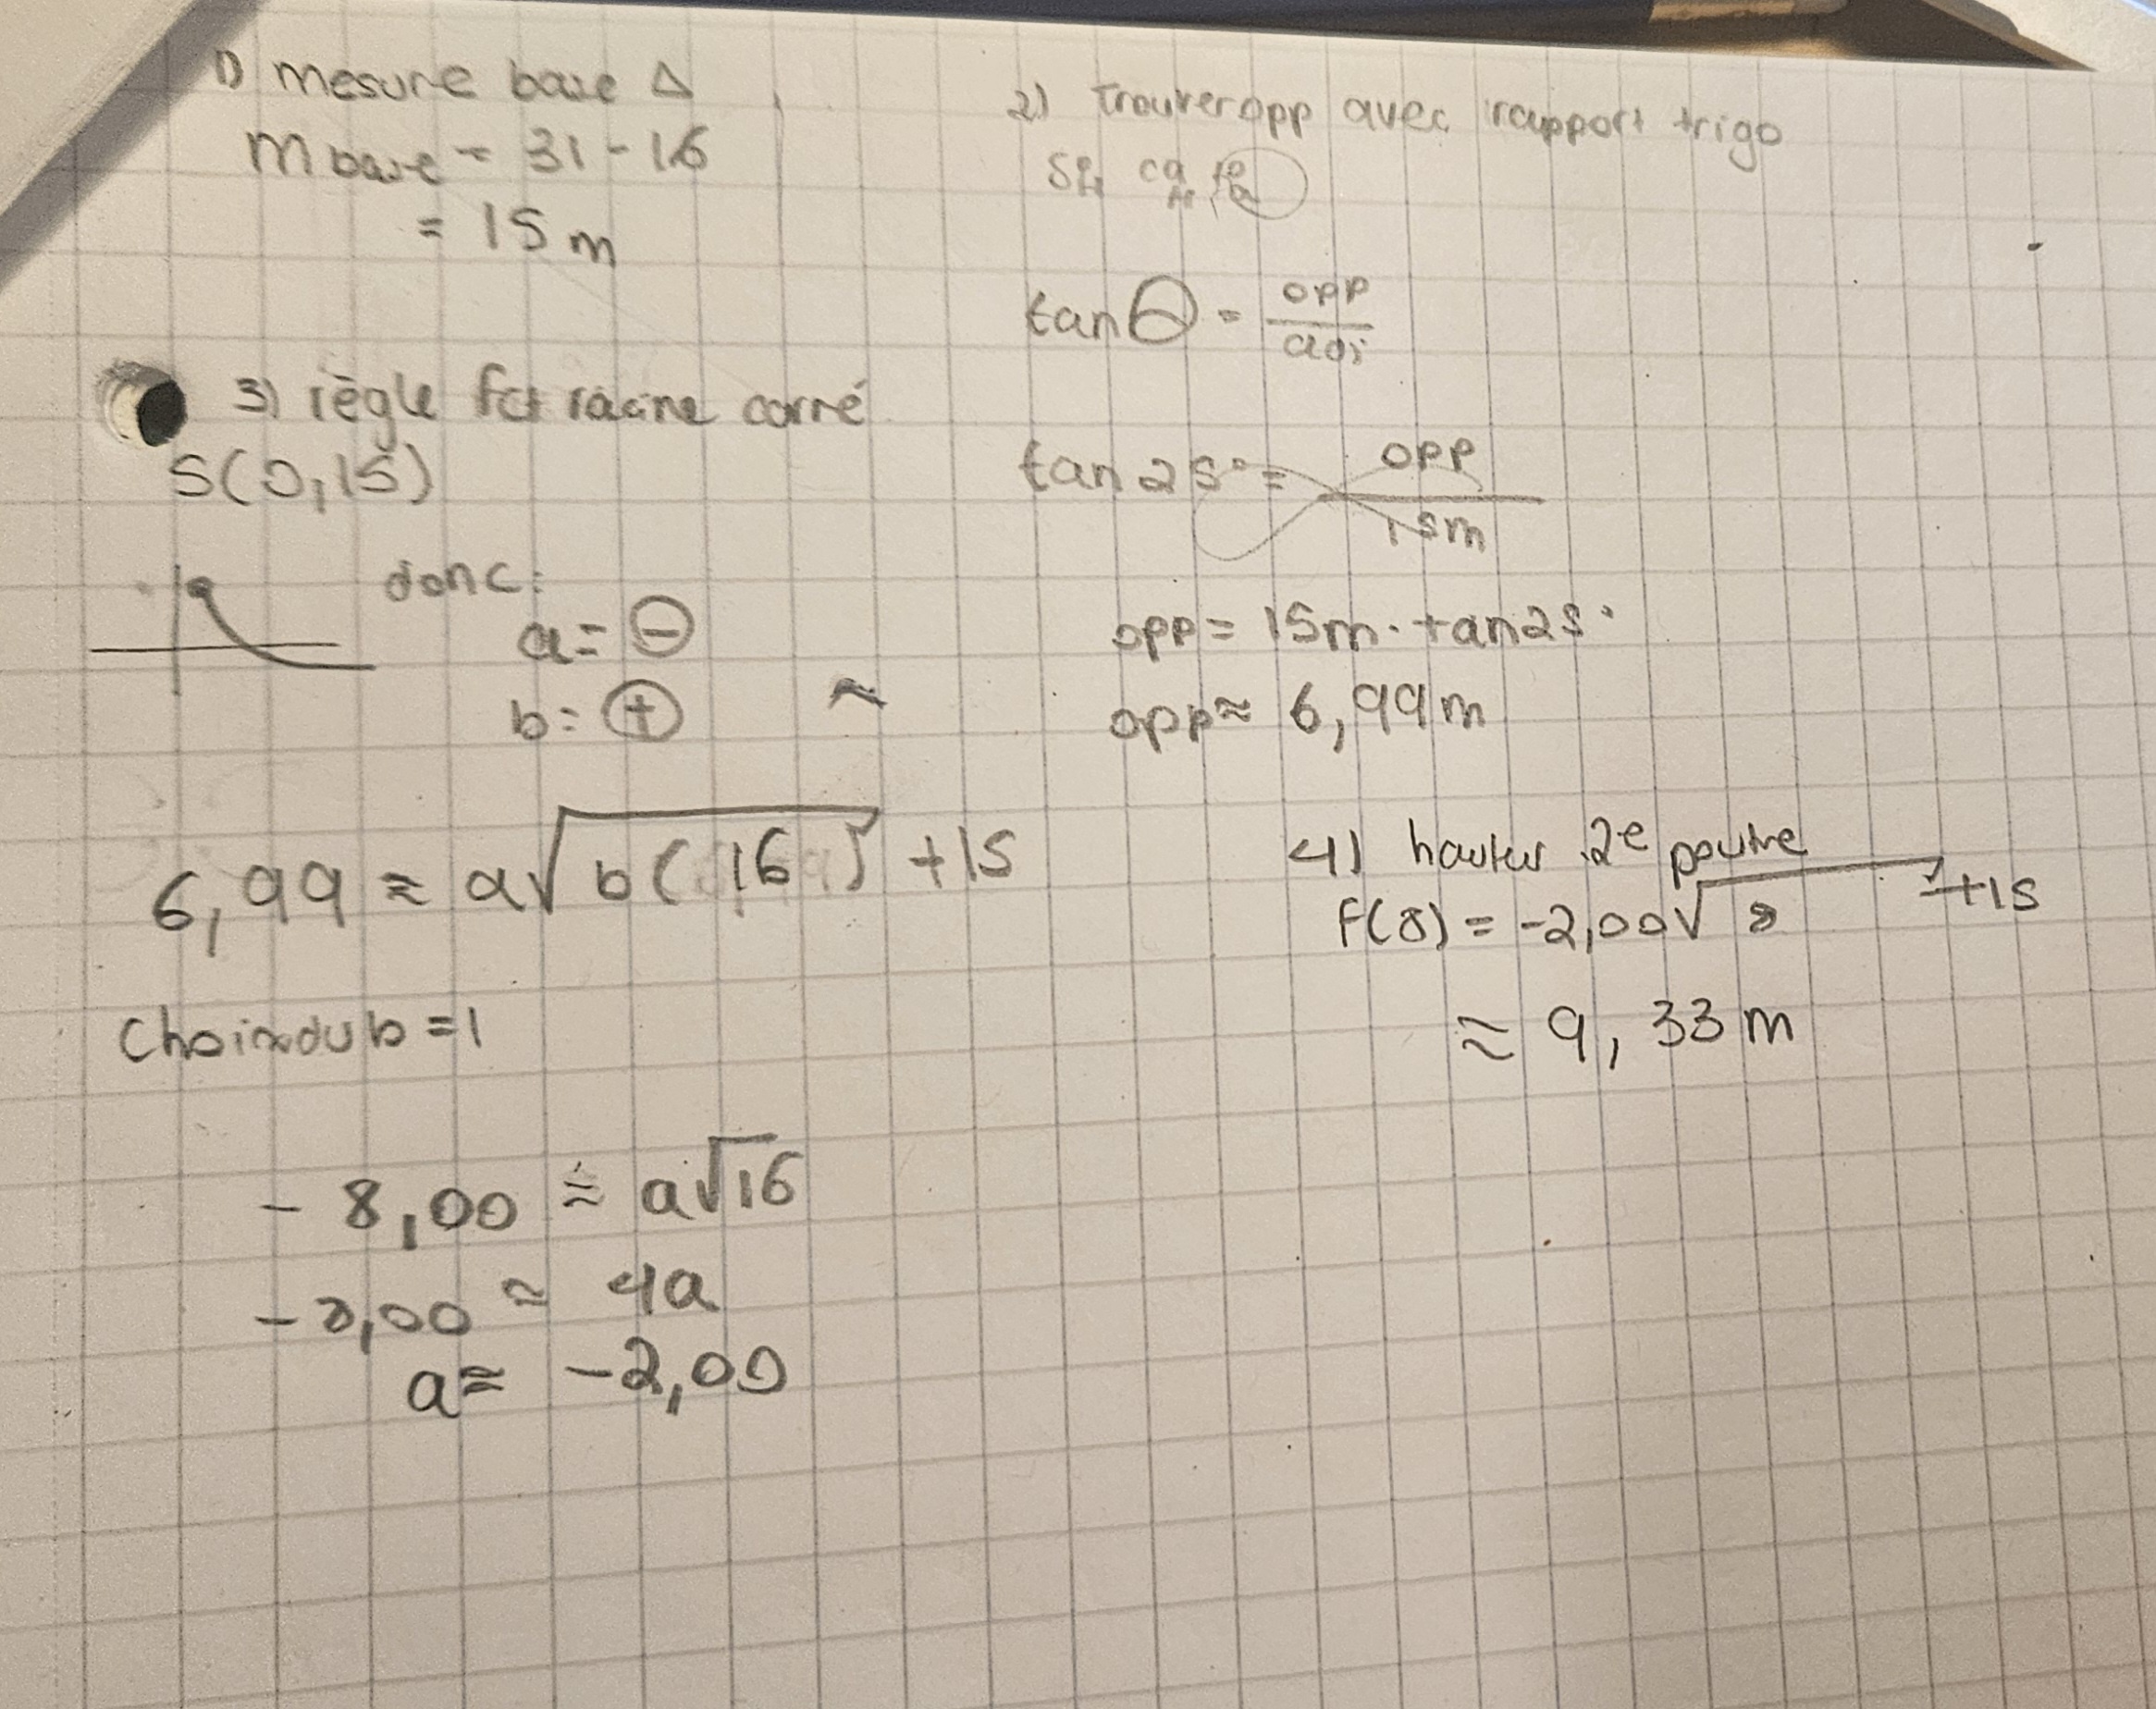 1) mesure base Δ
m base = 31 - 16
= 15 m
2) Trouver opp avec rapport trigo
tan θ = opp / adj
tan 25° = opp / 15m
opp = 15m · tan 25°
opp ≈ 6,99 m
3) règle fct racine carré
S(0,15)
donc:
a = ⊖
b = ⊕
≈
6,99 ≈ a√b(16) + 15
Choix du b = 1
- 8,00 ≈ a√16
- 8,00 ≈ 4a
a ≈ -2,00
4) hauteur 2e poutre
f(8) = -2,00√8 + 15
≈ 9,33 m